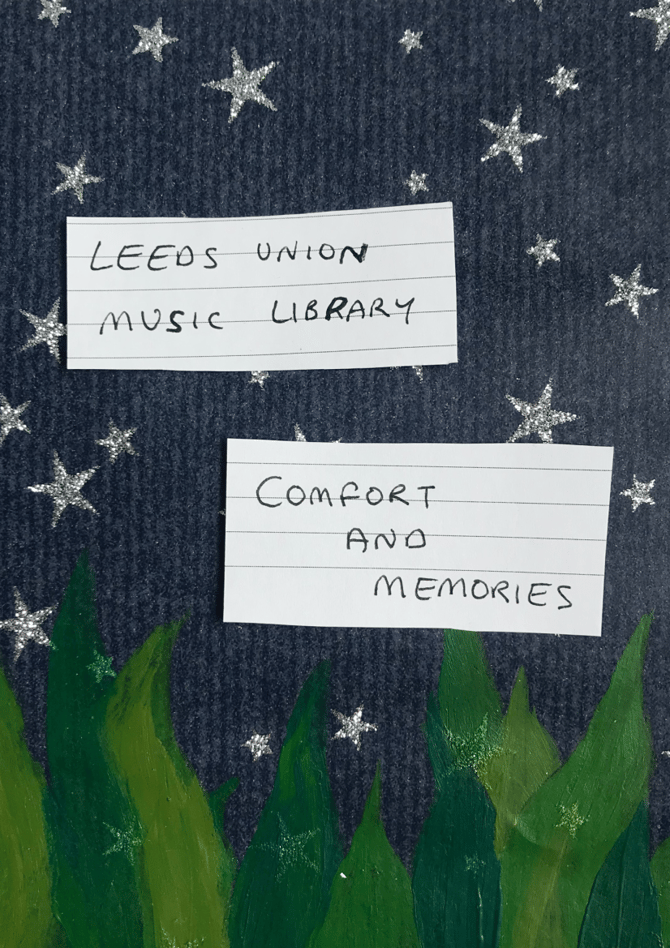 LEEDS UNION
MUSIC LIBRARY
COMFORT
AND
MEMORIES